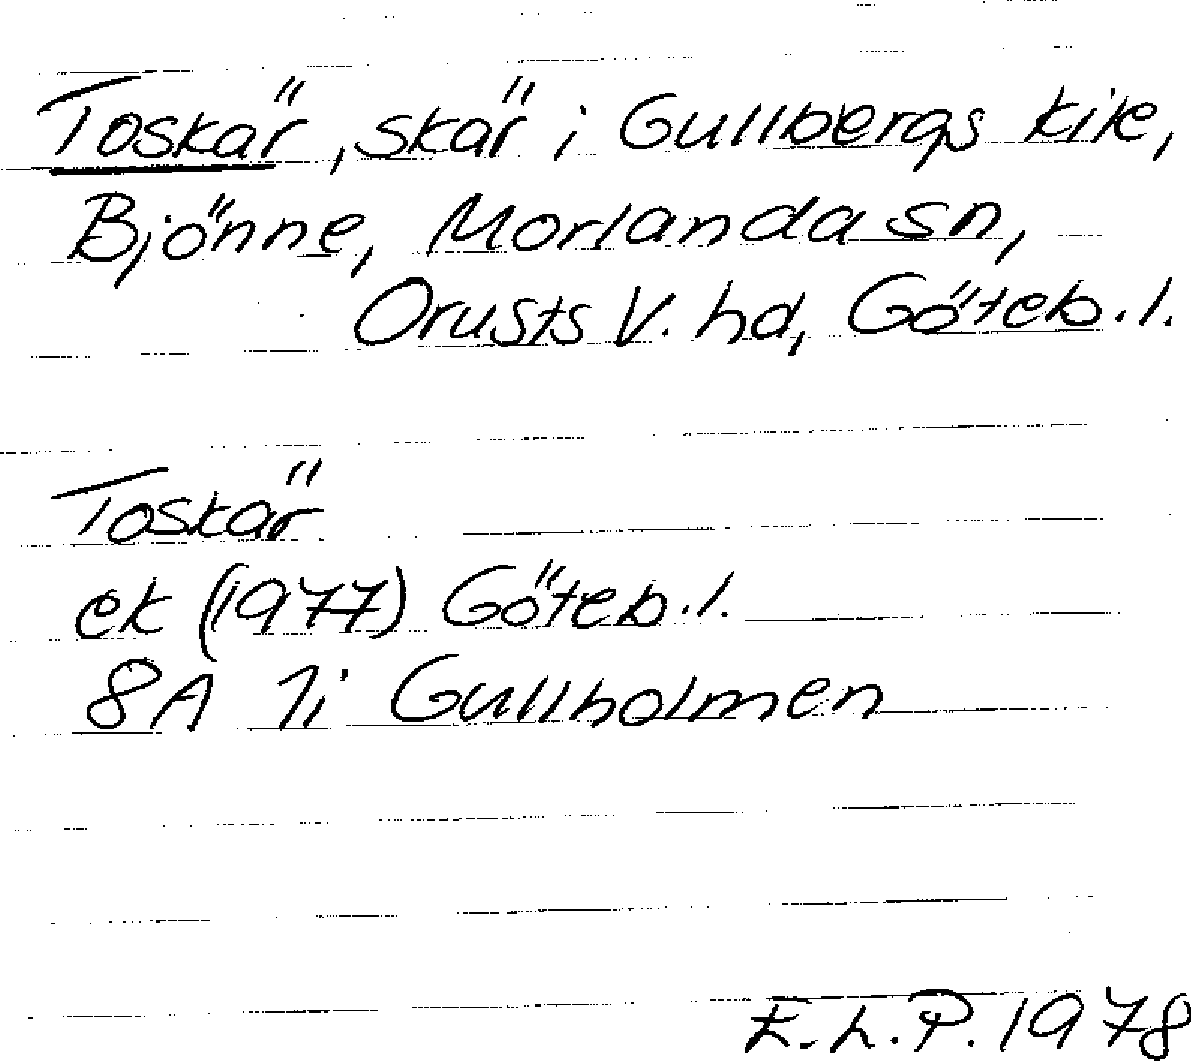 Toskär, skär i Gullbergs kile,
Bjönne, Morlanda sn,
Orusts V. hd, Göteb.l.
Toskär
ek (1977) Göteb.l.
8A 1i Gullholmen
E.L.P. 1978